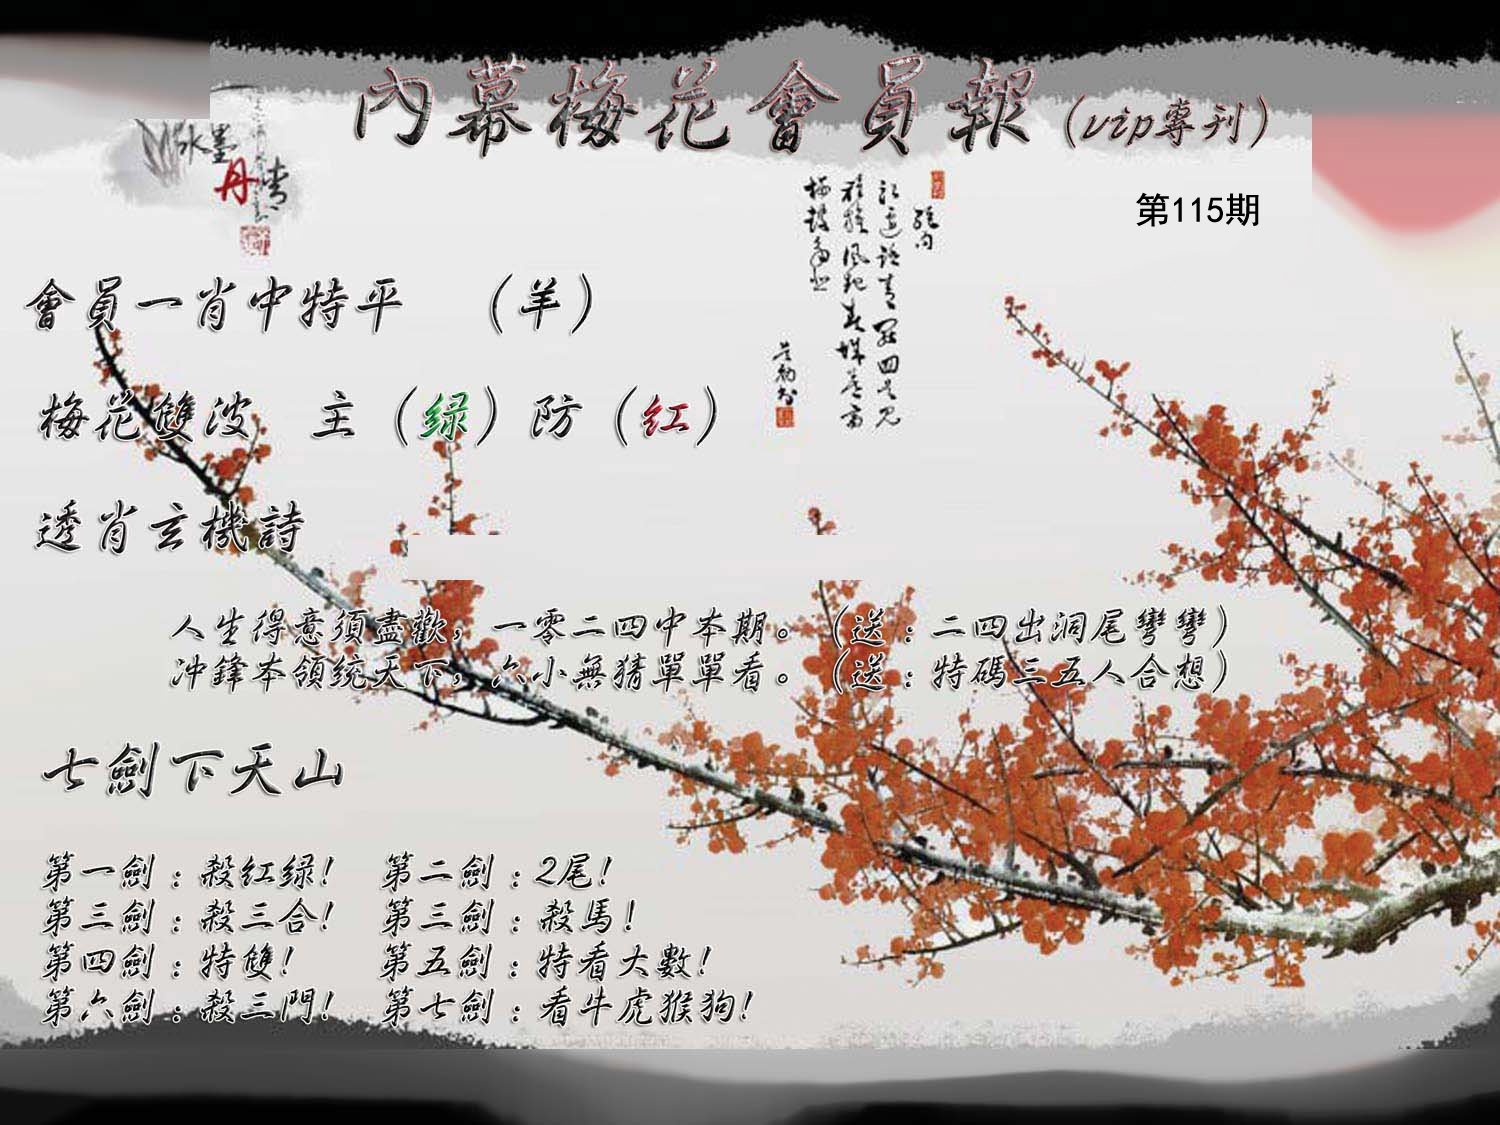 內幕梅花會員報（vip專刊）
水墨
丹青
第115期
會員一肖中特平　（羊）
梅花雙波　主（绿）防（红）
透肖玄機詩
人生得意須盡歡，一零二四中本期。（送：二四出洞尾彎彎）
冲鋒本領統天下，六小無猜單單看。（送：特碼三五人合想）
七劍下天山
第一劍：殺红绿！　第二劍：2尾！
第三劍：殺三合！　第三劍：殺馬！
第四劍：特雙！　第五劍：特看大數！
第六劍：殺三門！　第七劍：看牛虎猴狗！